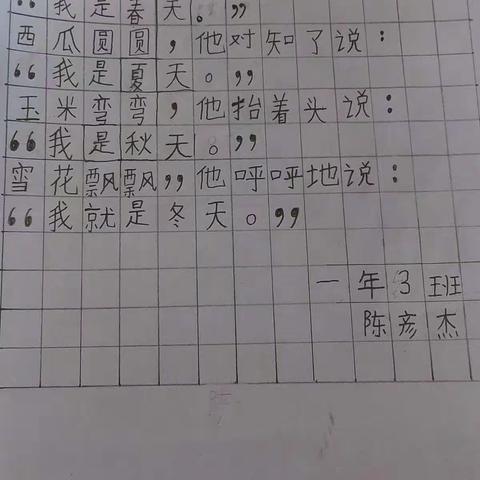 “我是春天。”
西瓜圆圆，他对知了说：
“我是夏天。”
玉米弯弯，他抬着头说：
“我是秋天。”
雪花飘飘，，他呼呼地说：
“我就是冬天。”
一年3班
陈彦杰